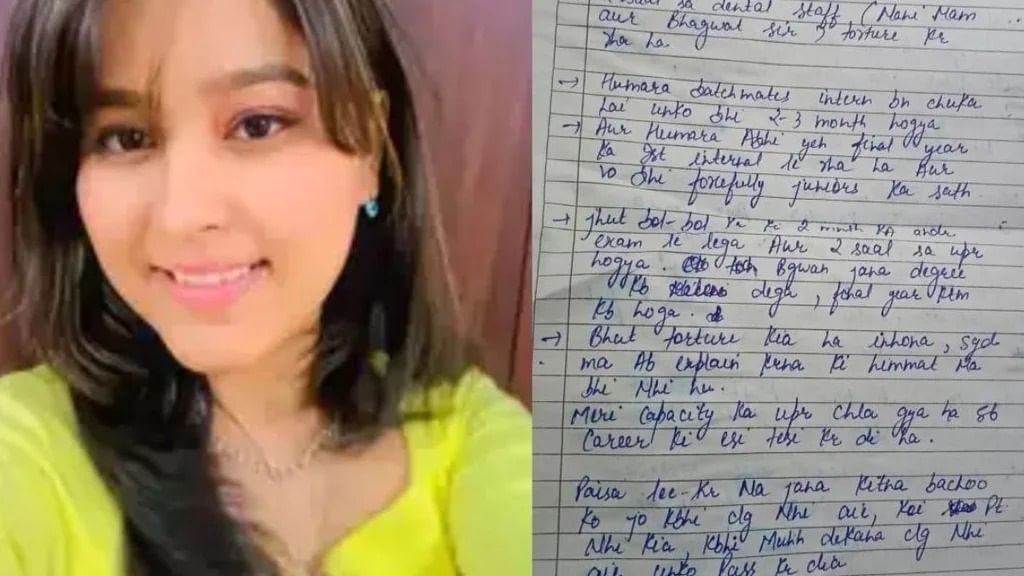 saal sa dental staff (Mahi Mam
aur Bhagwat sir) torture kr
rha ha
→ Humara batchmates intern bn chuka
hai unko bhi 2-3 month hogya
→ Aur Humara Abhi yeh final year
ka 1st internal le rha ha Aur
vo bhi forcefully juniors ka sath
→ jhut bol-bol kr ki 2 month ka andr
exam le lega Aur 2 saal sa upr
hogya. Bgwan jana degree
kb dega, final year ktm
kb hoga.
→ Bhut torture kia ha inhona, syd
ma Ab explain krna ki himmat Na
bhi Nhi hu.
Meri capacity ka upr chla gya ha sb
Career ki esi tesi kr di ha.
Paisa lee-kr Na jana kitna bachoo
ko jo kbhi clg Nhi air, koi Pt.
Nhi kia, kbhi Muhh dekana clg Nhi
air unko Pass kr dia